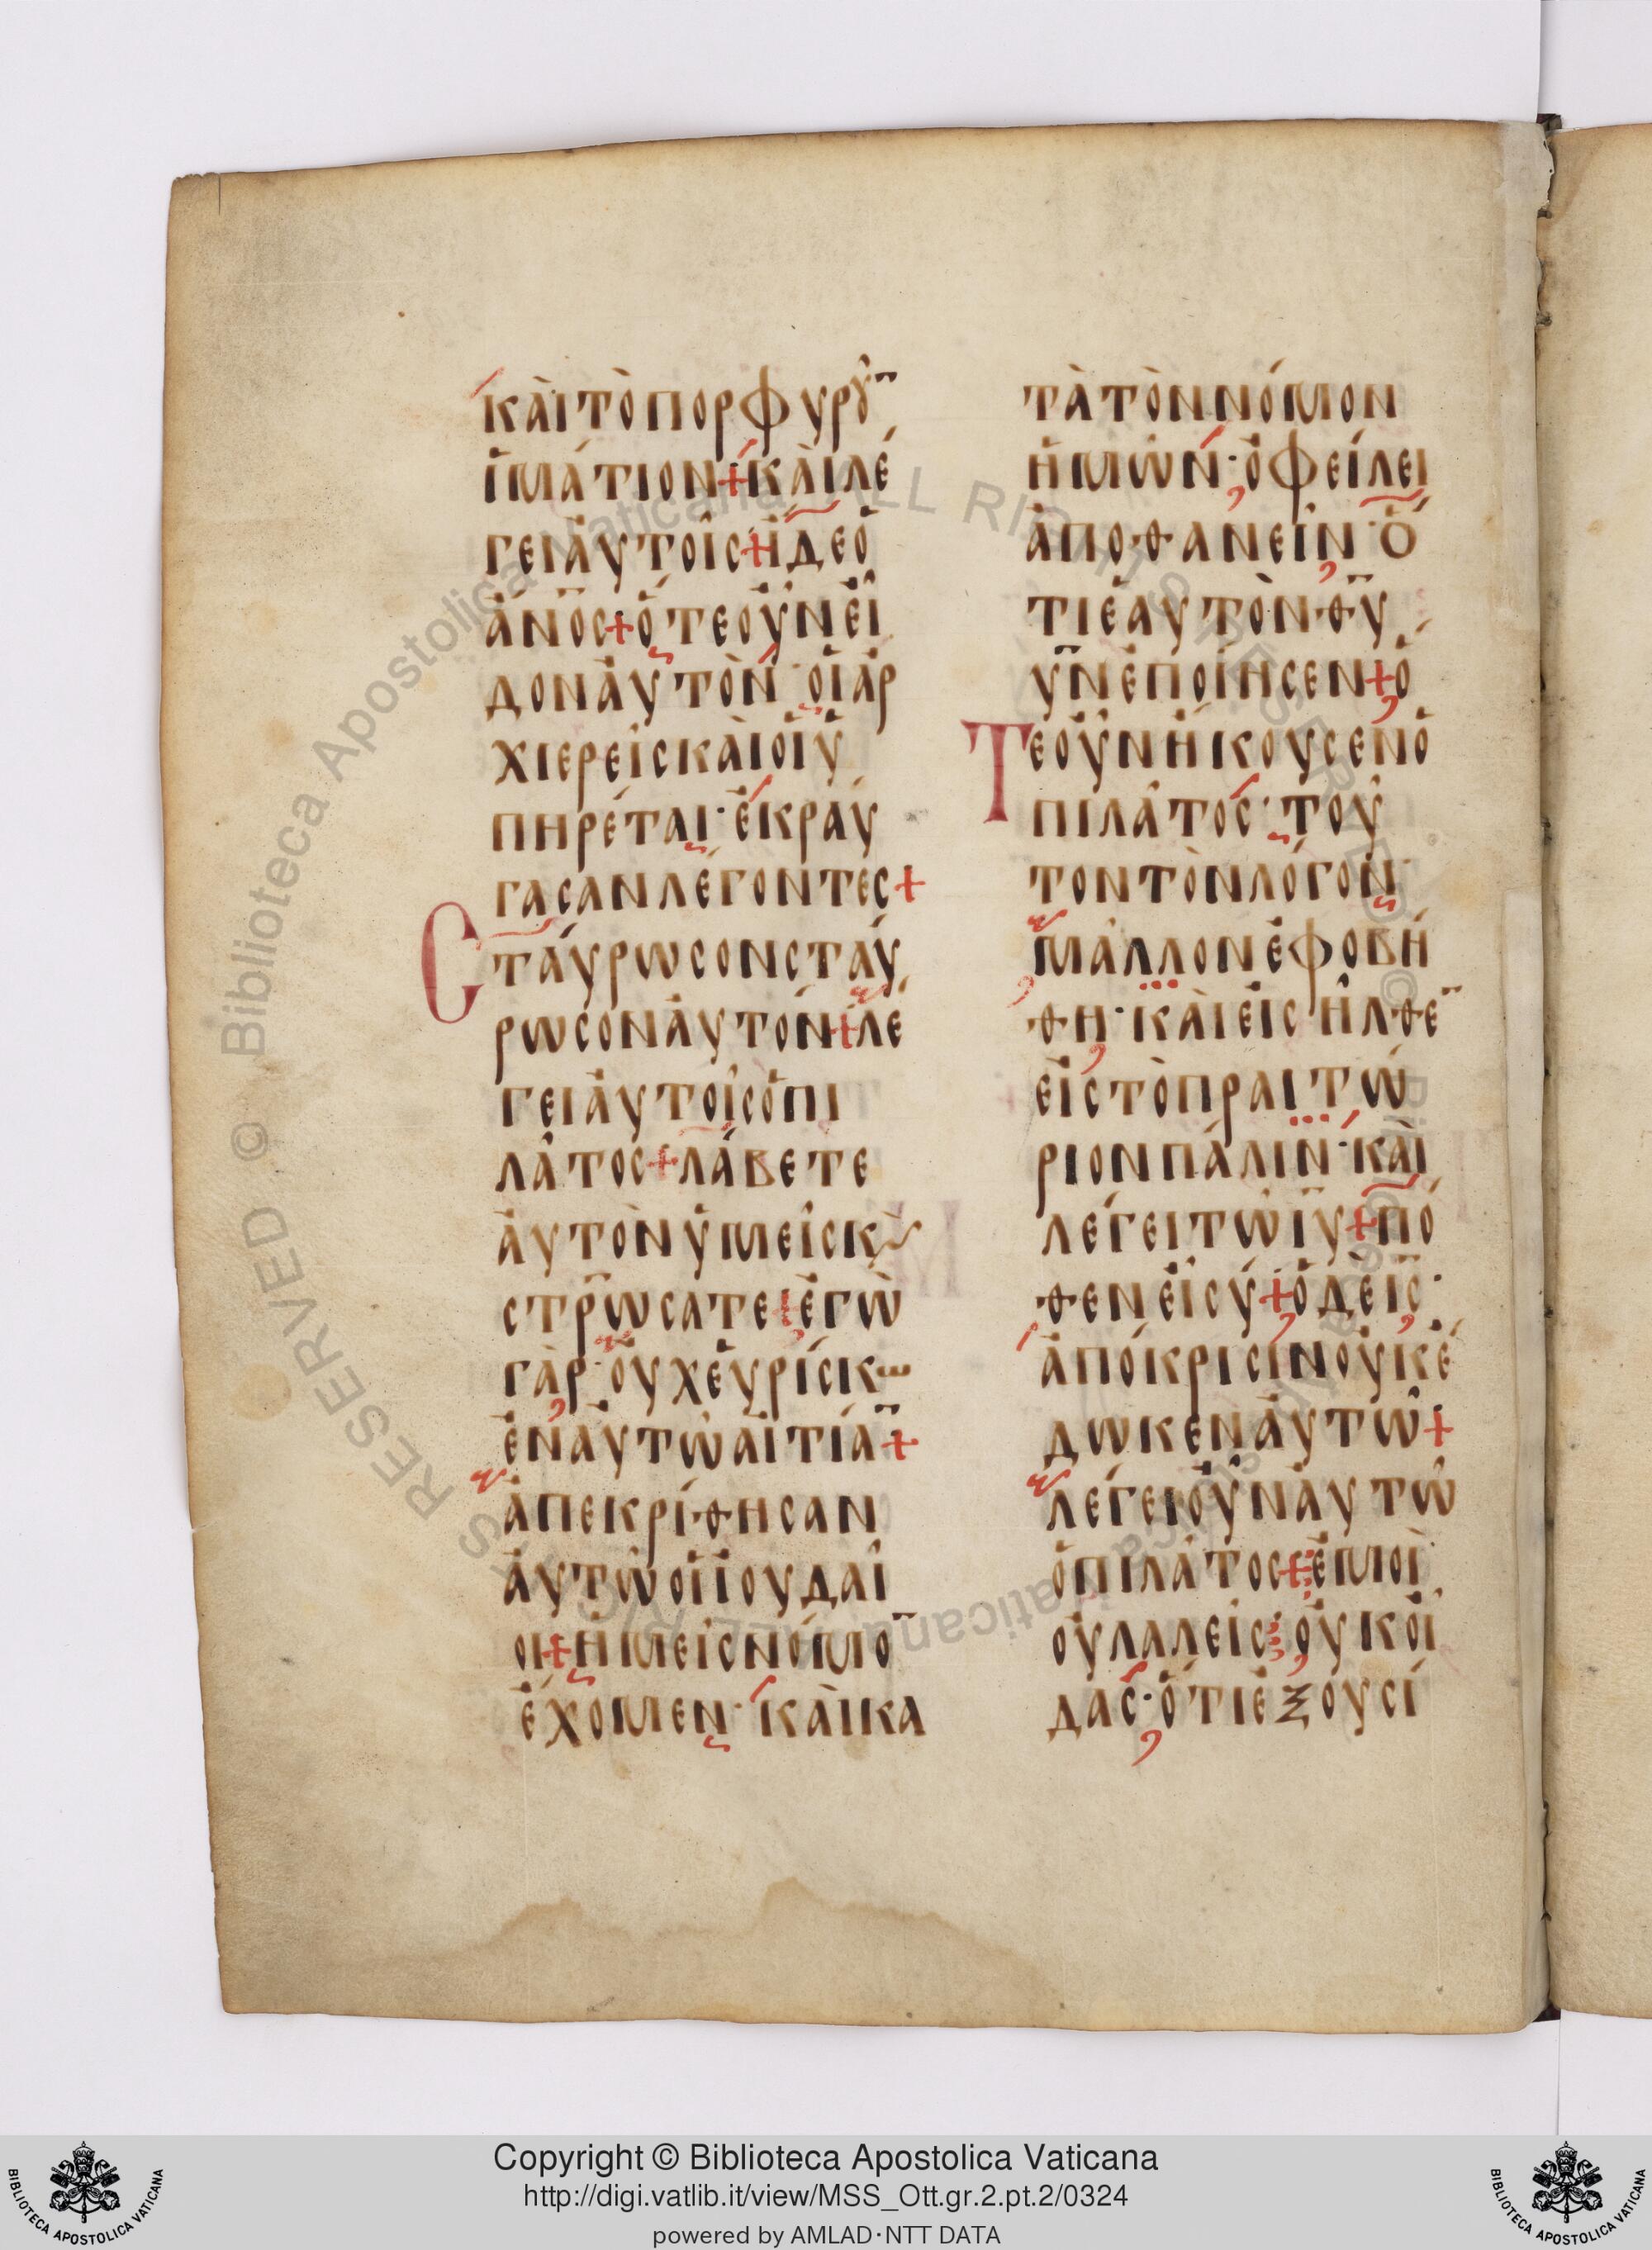 ΚΑὶΤὸΠΟΡΦΥΡΟῦ̅
ἱΜΆΤΙΟΝ+ΚΑὶΛΈ
ΓΕΙἀΥΤΟῖC+ἴΔΕὁ
ἄΝ̅ΟC+ὅΤΕΟὖΝΕἶ
ΔΟΝἀΥΤῸΝ·ΟἱἀΡ
ΧΙΕΡΕῖCΚΑὶΟἱὑ
ΠΗΡΈΤΑΙ·ἐΚΡΑΎ
ΓΑCΑΝΛΈΓΟΝΤΕC+
CΤΑΎΡωCΟΝCΤΑΎ
ΡωCΟΝἀΥΤΌΝ+ΛΈ
ΓΕΙἀΥΤΟῖCὁΠΙ
ΛᾶΤΟC+ΛΆΒΕΤΕ
ἀΥΤῸΝὑΜΕῖCΚϚ
CΤΡ̅ωCΑΤΕ+ἐΓὼ
ΓὰΡ·ΟὐΧΕὑΡΊCΚω
ἐΝἀΥΤῶΑἰΤΊΑ̅+
ἀΠΕΚΡΊΘΗCΑΝ
ἀΥΤῶΟἱἸΟΥΔΑῖ
ΟΙ+ἡΜΕῖCΝΌΜΟ̅
ἔΧΟΜΕΝ·ΚΑὶΚΑ
ΤὰΤῸΝΝΌΜΟΝ
ἡΜῶΝ·ὀΦΕΊΛΕΙ
ἀΠΟΘΑΝΕῖΝ·Ὅ
ΤΙἑΑΥΤῸΝΘ̅Υ
Υ̅ΝἐΠΟΊΗCΕΝ+Ὅ
ΤΕΟὖΝἤΚΟΥCΕΝὁ
ΠΙΛᾶΤΟC·ΤΟῦ
ΤΟΝΤῸΝΛΌΓΟΝ·
ΜᾶΛΛΟΝἐΦΟΒΉ
ΘΗ·ΚΑὶΕἰCῆΛΘΕ̅
ΕἰCΤὸΠΡΑΙΤώ
ΡΙΟΝΠΆΛΙΝ·ΚΑὶ
ΛΈΓΕΙΤῶἸ̅Υ+ΠΌ
ΘΕΝΕἶCΎ+ὁΔὲἸ̅C·
ἀΠΌΚΡΙCΙΝΟὐΚἔ
ΔωΚΕΝἀΥΤῶ+
ΛΈΓΕΙΟὖΝἀΥΤῶ
ὁΠΙΛᾶΤΟC+ἐΜΟὶ
ΟὐΛΑΛΕῖC·ΟὐΚΟἶ
ΔΑC·ὅΤΙἐΞΟΥCΊ
Copyright © Biblioteca Apostolica Vaticana
http://digi.vatlib.it/view/MSS_Ott.gr.2.pt.2/0324
powered by AMLAD·NTT DATA
BIBLIOTECA APOSTOLICA VATICANA
BIBLIOTECA APOSTOLICA VATICANA